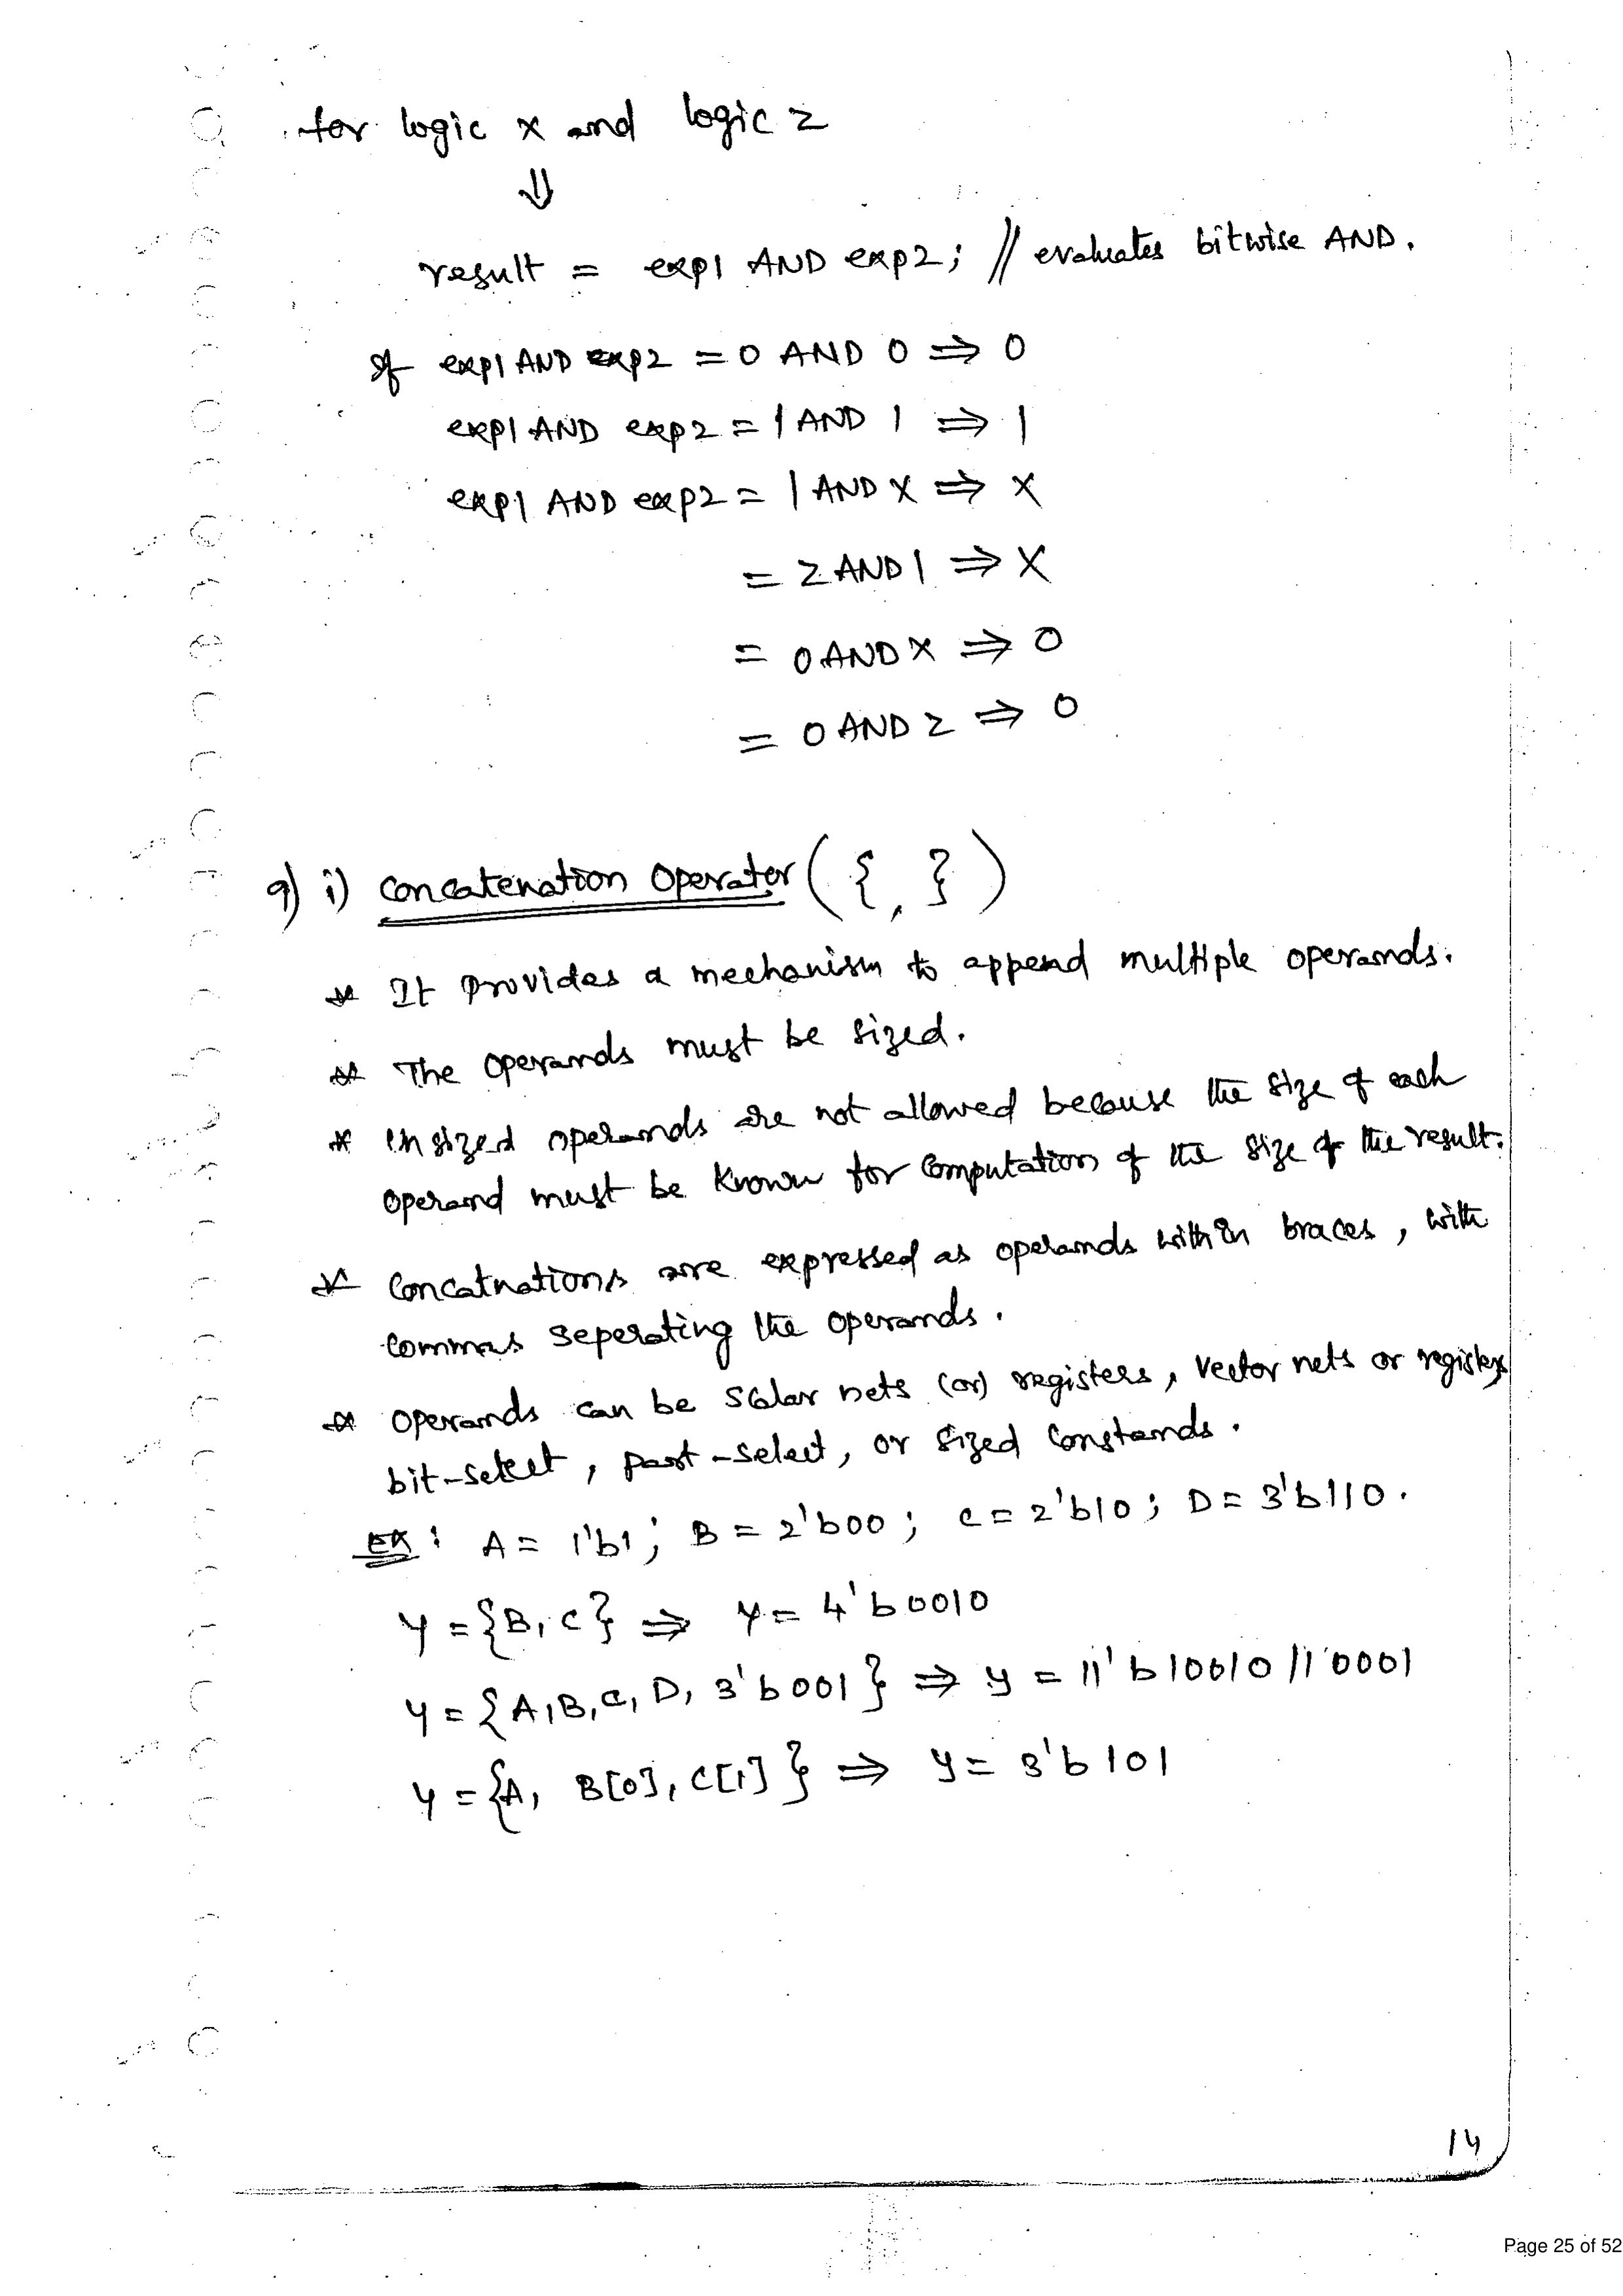 for logic x and logic z
⇓
result = exp1 AND exp2; // evaluates bitwise AND.
If exp1 AND exp2 = 0 AND 0 ⇒ 0
exp1 AND exp2 = 1 AND 1 ⇒ 1
exp1 AND exp2 = 1 AND X ⇒ X
= Z AND 1 ⇒ X
= 0 AND X ⇒ 0
= 0 AND Z ⇒ 0
9) i) Concatenation Operator ( { , } )
* It provides a mechanism to append multiple operands.
* The operands must be sized.
* Unsized operands are not allowed because the size of each
operand must be known for Computation of the size of the result.
* Concatnations are expressed as operands within braces, with
commas seperating the operands.
* Operands can be scalar nets (or) registers, vector nets or registers
bit-select, part-select, or sized constands.
EX : A = 1'b1; B = 2'b00; C = 2'b10; D = 3'b110.
Y = {B, C} ⇒ Y = 4'b0010
Y = {A, B, C, D, 3'b001} ⇒ y = 11'b10010110001
Y = {A, B[0], C[1]} ⇒ y = 3'b101
14
Page 25 of 52